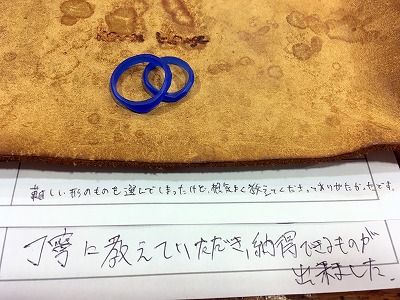 難しい形のものを選んでしまったけど、根気よく教えてくださってありがたかったです。
丁寧に教えていただき、納得できるものが
出来ました。